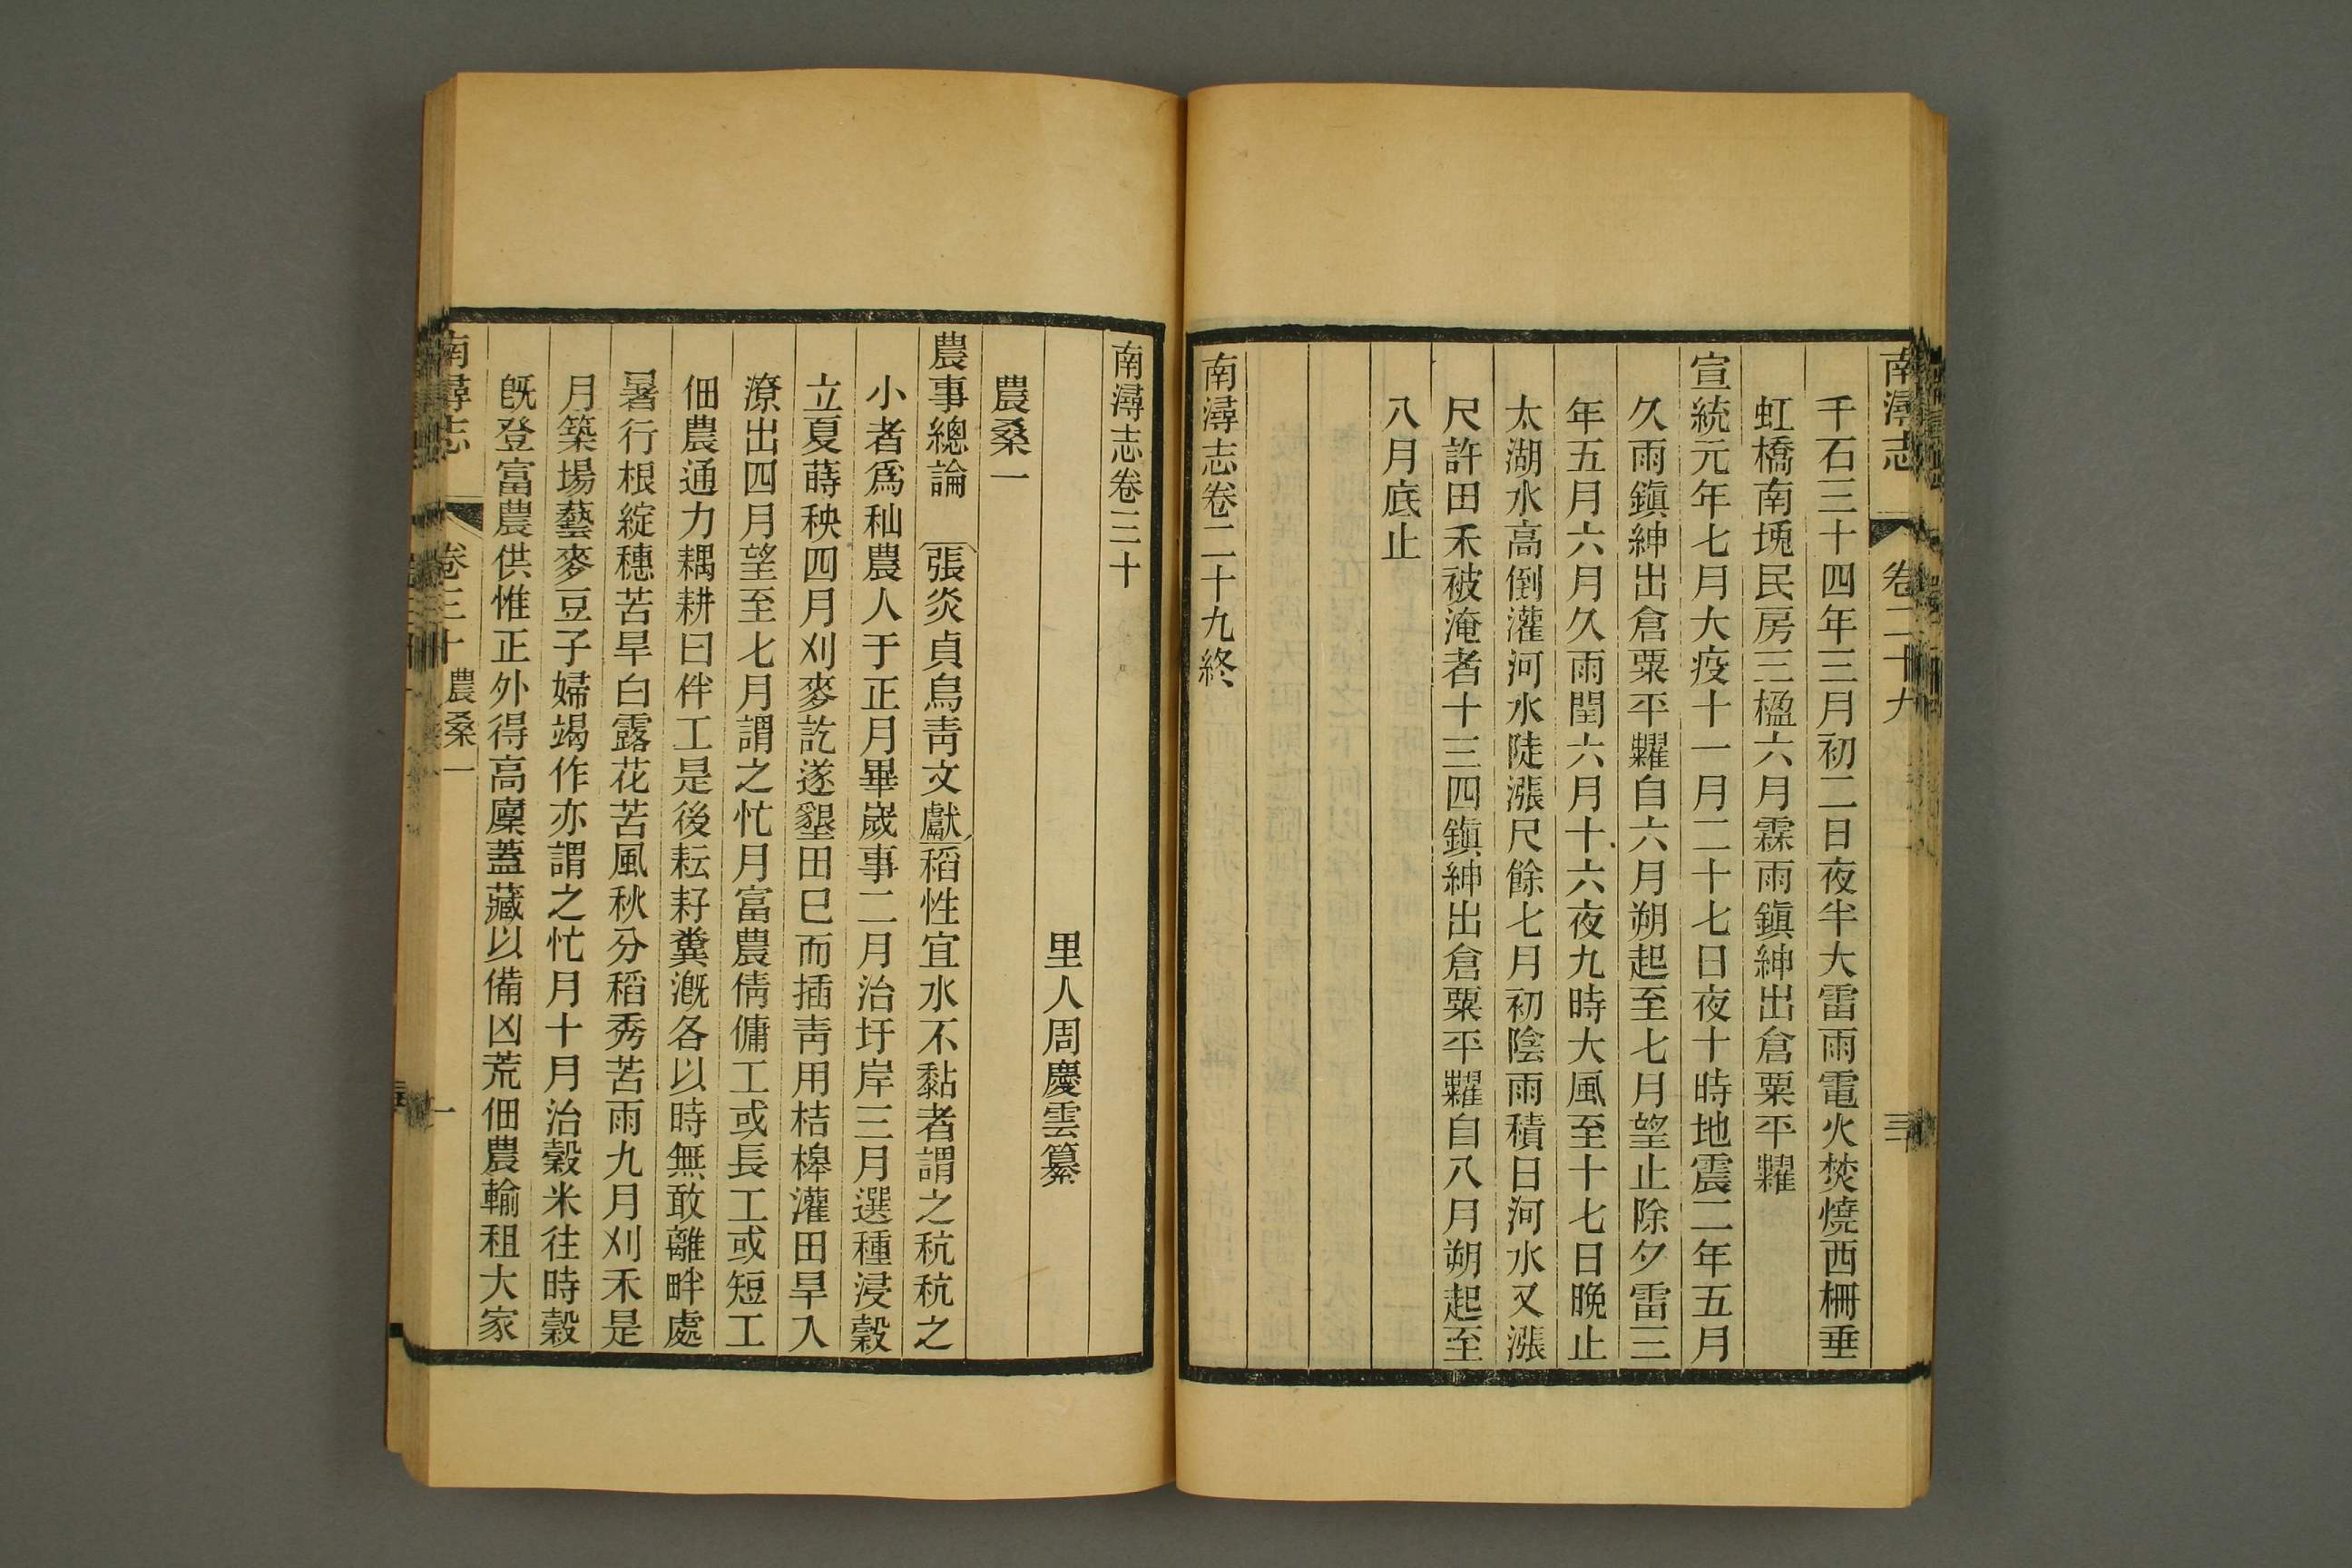 南潯志 卷二十九
千石三十四年三月初二日夜半大雷雨電火焚燒西柵垂
虹橋南堍民房三楹六月霖雨鎭紳出倉粟平糶
宣統元年七月大疫十一月二十七日夜十時地震二年五月
久雨鎭紳出倉粟平糶自六月朔起至七月望止除夕雷三
年五月六月久雨閏六月十六夜九時大風至十七日晚止
太湖水高倒灌河水陡漲尺餘七月初陰雨積日河水又漲
尺許田禾被淹者十三四鎭紳出倉粟平糶自八月朔起至
八月底止
南潯志卷二十九終
南潯志卷三十
里人周慶雲纂
農桑一
農事總論 張炎貞烏靑文獻稻性宜水不黏者謂之秔秔之
小者爲秈農人于正月畢歲事二月治圩岸三月選種浸穀
立夏蒔秧四月刈麥訖遂墾田巳而插靑用桔槹灌田旱入
潦出四月望至七月謂之忙月富農倩傭工或長工或短工
佃農通力耦耕曰伴工是後耘耔糞漑各以時無敢離畔處
暑行根綻穗苦旱白露花苦風秋分稻秀苦雨九月刈禾是
月築場藝麥豆子婦竭作亦謂之忙月十月治穀米往時穀
旣登富農供惟正外得高廩蓋藏以備凶荒佃農輸租大家
南潯志 卷三十 農桑一 一